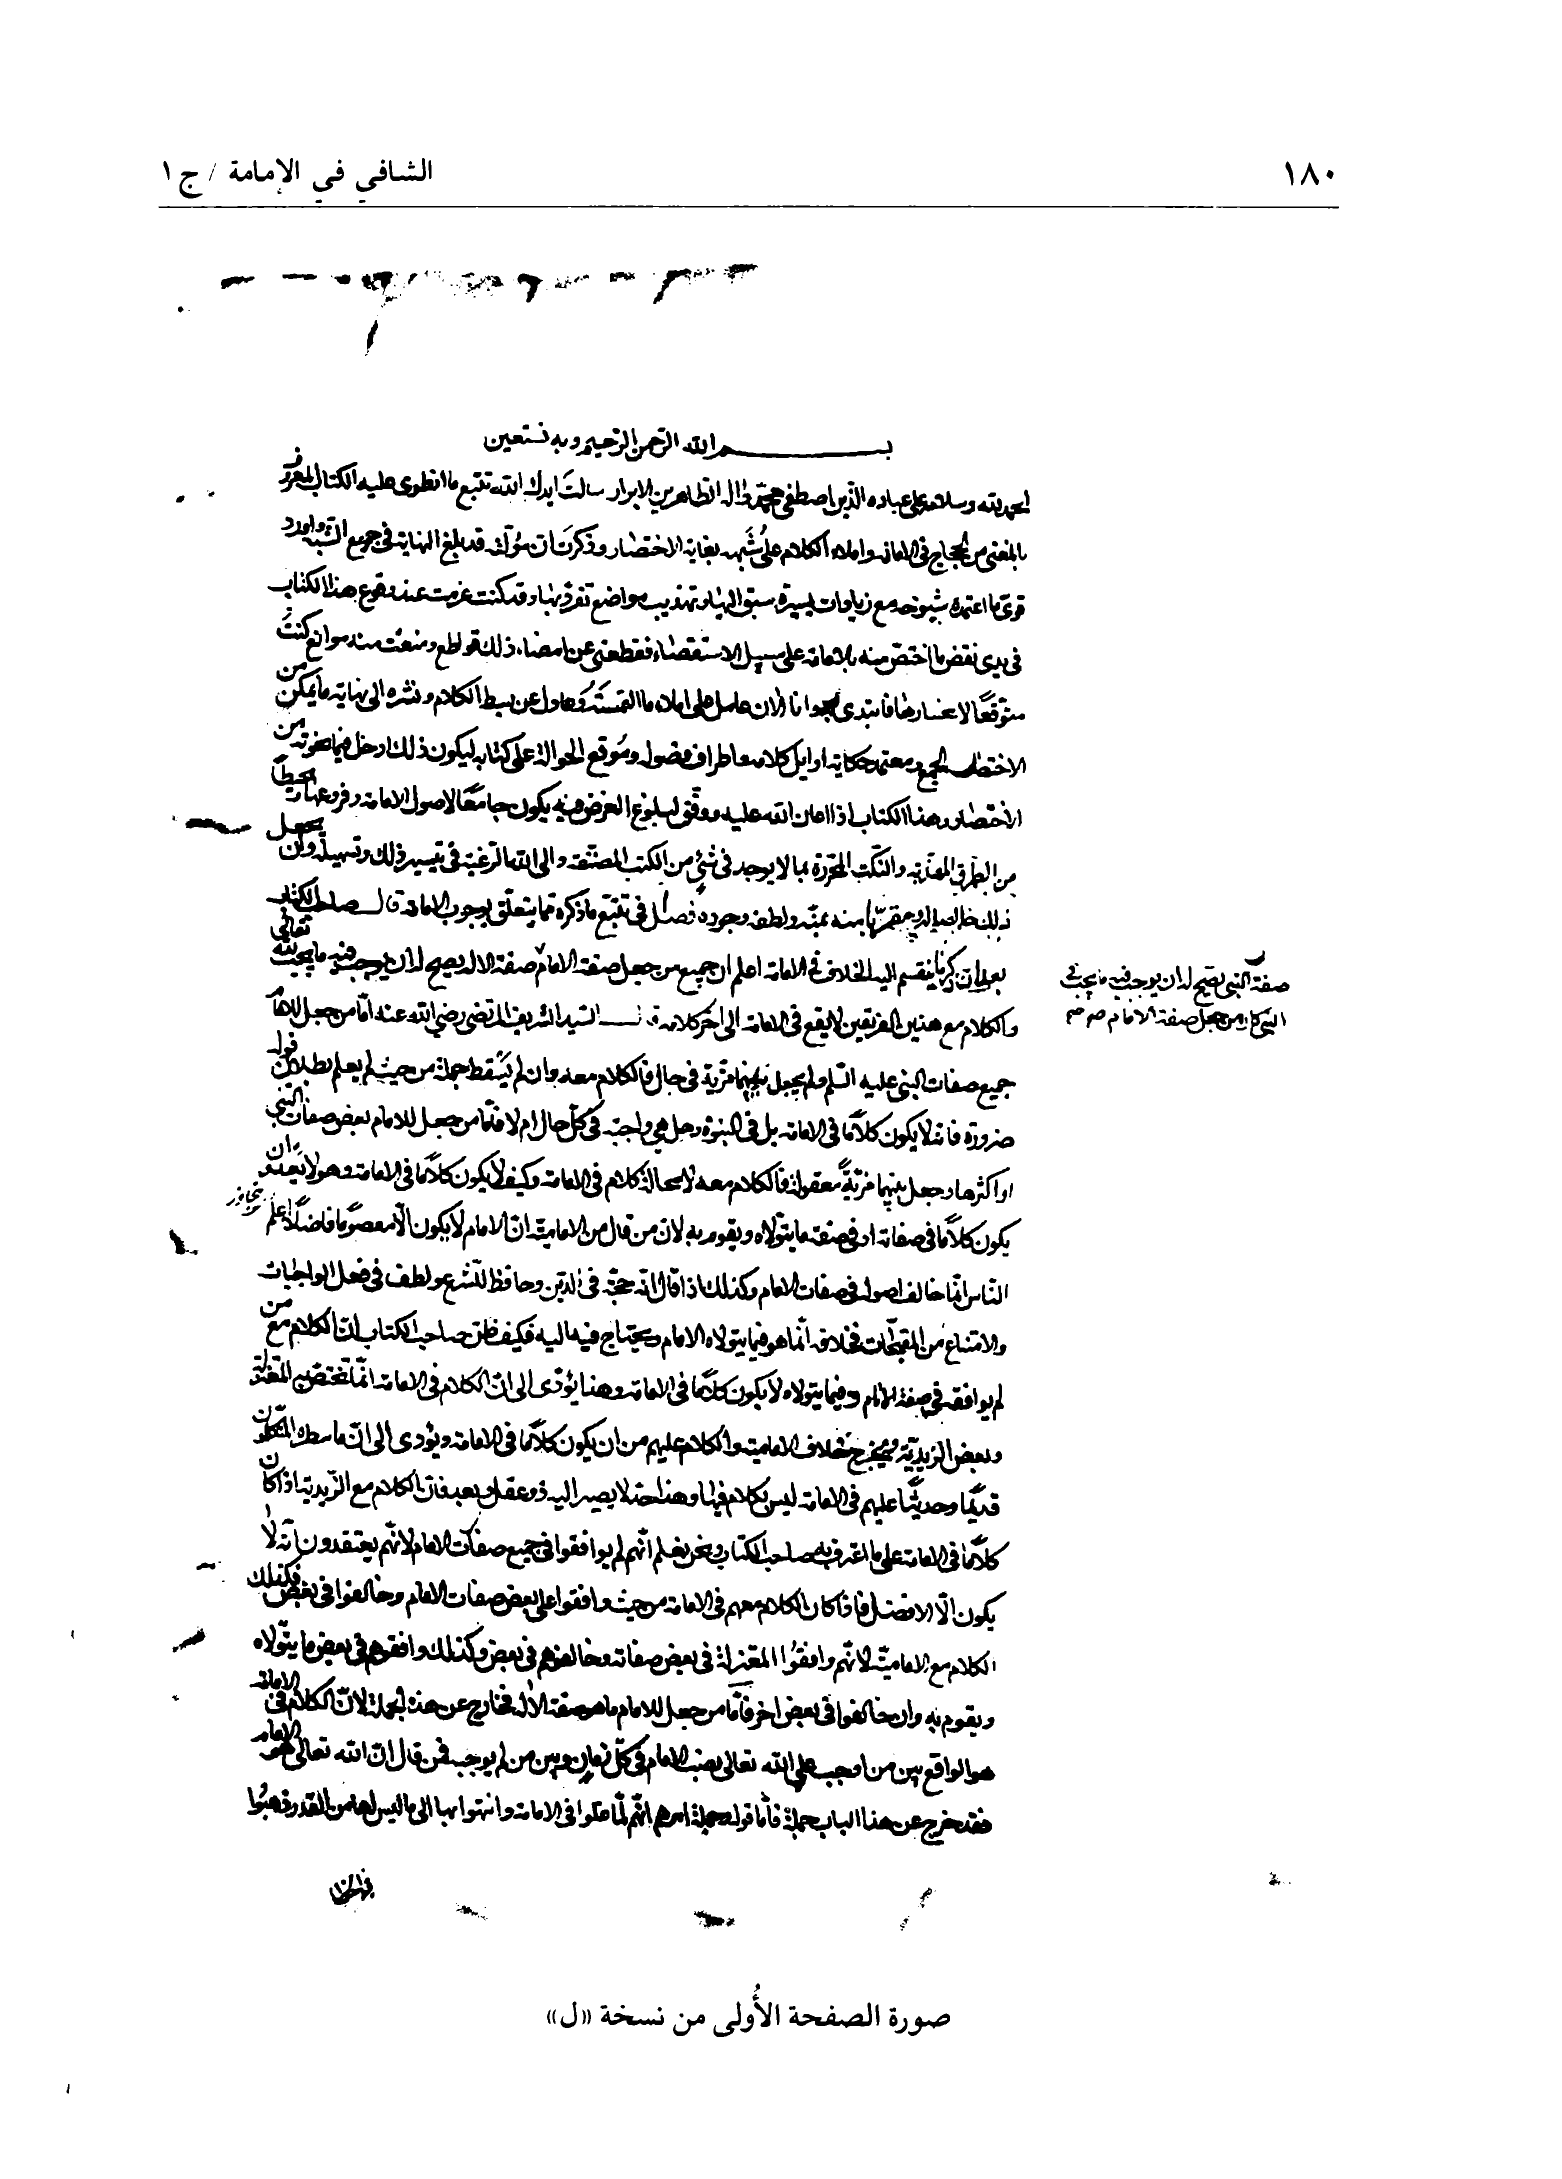 ١٨٠
الشافي في الإمامة / ج ١
بسم الله الرحمن الرحيم وبه نستعين
الحمد لله وسلامه على عباده الذين اصطفى محمد واله الطاهرين الابرار سالت ايدك الله تتبع ما انطوى عليه الكتاب المعروف
بالمغني من الحجاج في الامامة واملاء الكلام على شبهه بغاية الاختصار وذكرت ان مؤلفه قد بلغ النهاية في جميع الشبه واورد
قوي ما اعتمده شيوخه مع زيادات يسيرة سبق اليها وتهذيب مواضع تفرد بها وقد كنت عزمت عند وقوع هذا الكتاب
في يدي نقض ما اختص منه بالامامة على سبيل الاستقصاء فقطعني عن امضاء ذلك قواطع ومنعت منه موانع كنت
متوقعا لانحسارها فابتدي به وانا الان عامل على املاء ما التمسته وعادل عن بسط الكلام ونشره الى نهاية ما يمكن من
الاختصار والجمع ومعتمد حكاية اوايل كلامه واطراف فصوله وموقع الحوالة على كتابه ليكون ذلك ادخل فيما نحوته من
الاختصار وهذا الكتاب اذا اعان الله عليه ووفق لبلوغ الغرض فيه يكون جامعا لاصول الامامة وفروعها ومحيطا
من الطرق المهذبة والنكت المحررة بما لا يوجد في شئ من الكتب المصنفة والى الله الرغبة في تيسير ذلك وتسهيله وان يجعل
ذلك خالصا له ومقربا منه بمنه ولطفه وجوده فصل في تتبع ما ذكره مما يتعلق بوجوب الامامة قال صاحب الكتاب
بعد ان ذكر ما ينقسم اليه الخلاف في الامامة اعلم ان جميع من جعل صفة الامام صفة الاله يصح له ان يوجب فيه ما يجب لله تعالى
صفة النبي يصح له ان يوجب فيه ما يجب في
النبي كان من جعل صفة الامام صح صح
والكلام مع هذين الفريقين لا يقع في الامامة الى اخر كلامه قال السيد الشريف المرتضى رضي الله عنه اما من جعل للامام
جميع صفات النبي عليه السلم ولم يجعل بينهما مزية في حال فالكلام معه وان لم يسقط جملة من حيث لم يعلم بطلان قوله
ضرورة فانه لا يكون كلاما في الامامة بل في النبوة وهل هي واجبة في كل حال ام لا فاما من جعل للامام بعض صفات النبي
او اكثرها وجعل بينهما مزية معقولة فالكلام معه لا محالة كلام في الامامة وكيف لا يكون كلاما في الامامة وهو لا يعدو ان
يتجاوز
يكون كلاما في صفاته او في صفة ما يتولاه ويقوم به لان من قال من الامامية ان الامام لا يكون الا معصوما فاضلا اعلم
الناس انما خالف اصوله في صفات الامام وكذلك اذا قال انه حجة في الدين وحافظ للشرع ولطف في فعل الواجبات
والامتناع من المقبحات فخلافه انما هو فيما يتولاه الامام ويحتاج فيه اليه فكيف ظن صاحب الكتاب ان الكلام مع من
لم يوافقه في صفة الامام وفيما يتولاه لا يكون كلاما في الامامة وهذا يؤدي الى ان الكلام في الامامة انما يختص به المعتزلة
وبعض الزيدية ويخرج خلاف الامامية والكلام عليهم من ان يكون كلاما في الامامة ويؤدي الى ان ما سطره المتكلمون
قديما وحديثا عليهم في الامامة ليس بكلام فيها وهذا حد لا يصير اليه ذو عقل وبعد فان الكلام مع الزيدية اذا كان
كلاما في الامامة على ما اعترف به صاحب الكتاب ونحن نعلم انهم لم يوافقوا في جميع صفات الامام لانهم يعتقدون انه لا
يكون الا الافضل فاذا كان الكلام معهم في الامامة من حيث وافقوا على بعض صفات الامام وخالفوا في بعض فكذلك
الكلام مع الامامية لانهم وافقوا المعتزلة في بعض صفاته وخالفوهم في بعض وكذلك وافقوهم في بعض ما يتولاه
ويقوم به وان خالفوا في بعض اخر فاما من جعل للامام ما هو صفة الاله فخارج عن هذه الجملة لان الكلام في الامامة
هو الواقع بين من اوجب على الله تعالى نصب الامام في كل زمان وبين من لم يوجبه فمن قال ان الله تعالى هو الامام
فقد خرج عن هذا الباب جملة فاما قوله وجملة امرهم انهم لما غلوا في الامامة وانتهوا بها الى ما ليس لها من القدر ذهبوا
صورة الصفحة الأولى من نسخة «ل»